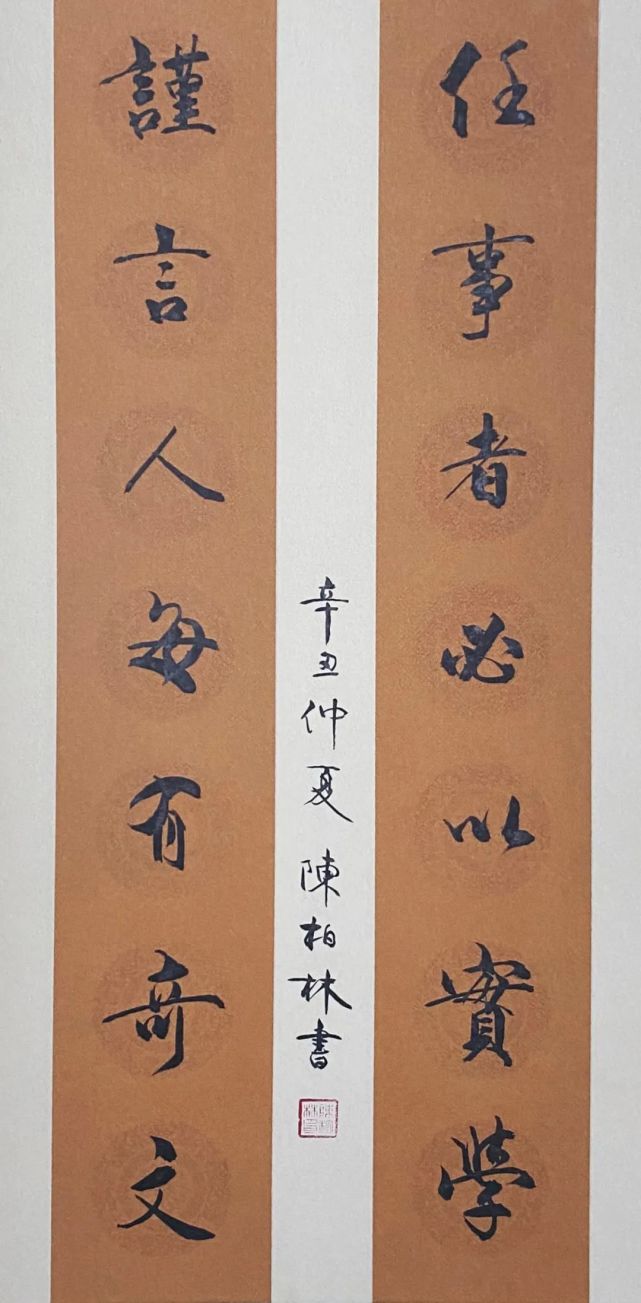 任事者必以實學
謹言人每有奇文
辛丑仲夏陳柏林書